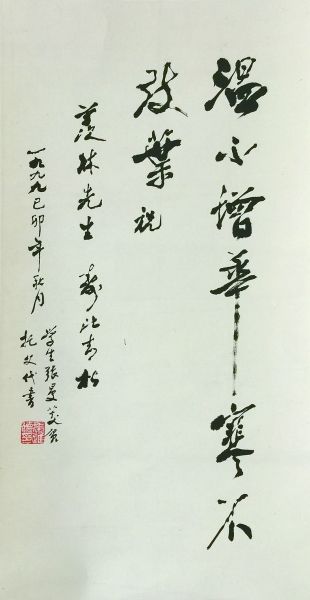 温不增華寒不
改葉祝
羡林先生 寿比青松
一九九九己卯年秋月
学生張曼菱負
托父代書